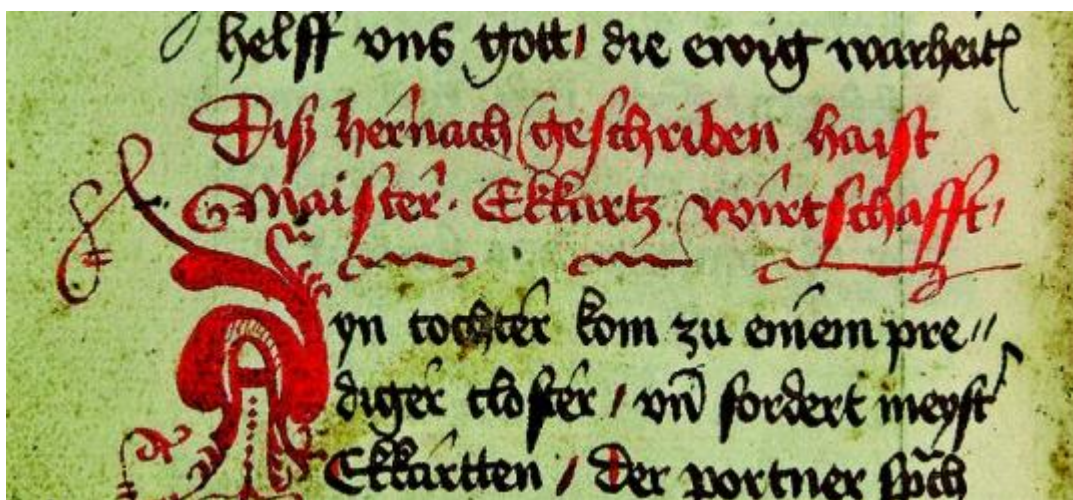 helff vns gott / die ewig warheit
Diß hernach geschriben haist
Maister · Ekkartz wirtschafft /
Ayn tochter kom zu einem pre //
diger closter / vn̄ fordert meyst̓
Ekkartten / Der portner sp̄ch